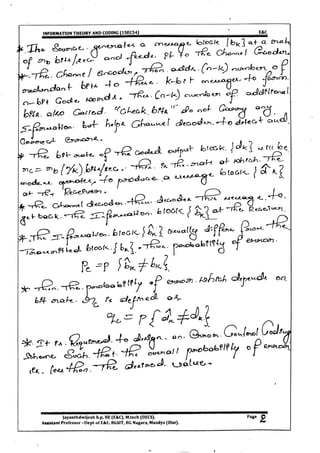 INFORMATION THEORY AND CODING (15EC54) E&C
* The Source generates a message block {bk} at a rate
of rb bits/sec. and feeds it to The Channel Encoder.
* The Channel Encoder, Then adds (n-k) number of
redundant bits to these k-bit messages to form
n-bit Code words. The (n-k) number of additional
bits also Called "Check bits" do not Carry any
Information but helps Channel decoder to detect and
Correct Errors.
* The bit rate of The Coded output block {dk} will be
rc = rb (n/k) bits/sec. This is The rate at which The
modem operates to produce a message block {d̂k}
at The Receiver.
* The Channel decoder then decodes This message to
get back The Information block {b̂k} at The Receiver.
* The Information block {b̂k} usually differs from the
Transmitted block {bk}. Thus probability of error
Pe = P {b̂k ≠ bk}
* Then The probability of error which depends on
bit rate. It is defined as
qc = P {d̂k ≠ dk}
* It is Required to design an Error Control Coding
Scheme Such that the overall probability of error
is less than The desired value.
Jayanthdwijesh H.p, BE (E&C), M.tech (DECS),
Assistant Professor – Dept of E&C, BGSIT, BG Nagara, Mandya (Dist).
Page 2